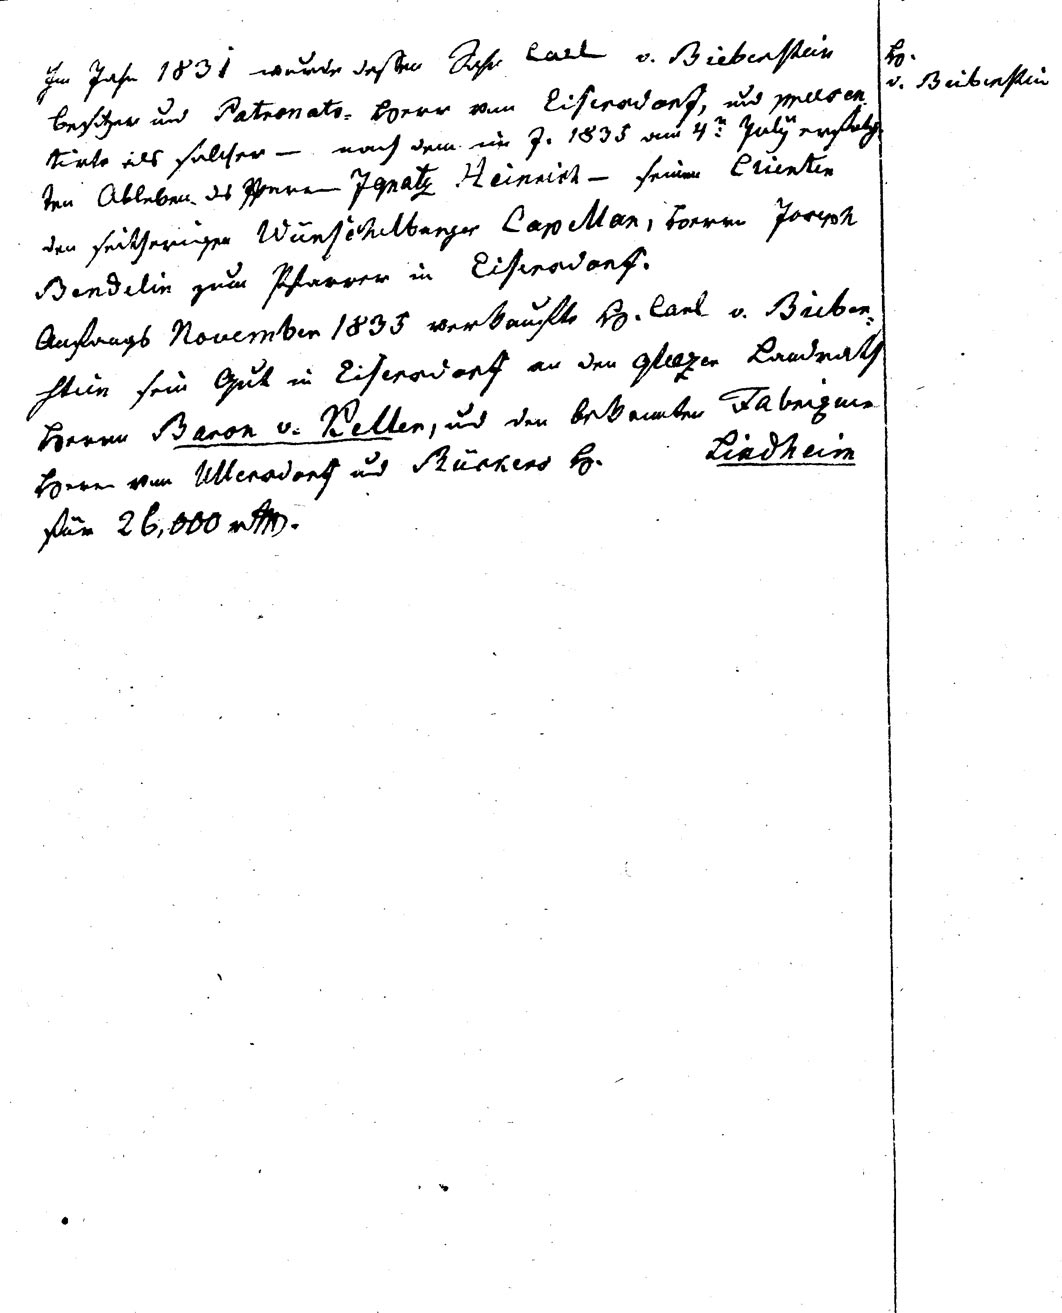 Im Jahr 1831 wurde dessen Sohn Carl v. Bieberstein
Besitzer und Patronats-Herr von Eisersdorf, und præsen
tirte als solcher — nach dem im J. 1835 am 4n July erfolg-
ten Ableben des Pfarrers Ignatz Heinrich — seinen Clienten
den seitherigen Wünschelburger Capellan, Herrn Joseph
Bendelin zum Pfarrer in Eisersdorf.
Anfangs November 1835 verkaufte H. Carl v. Bieber-
stein sein Gut in Eisersdorf an den glazer Landrath
Herrn Baron v. Zeller, und den bekannten Fabriquen
Herrn von Ullersdorf und Rückers H. Lindheim
für 26,000 rthl.
H.
v. Bieberstein